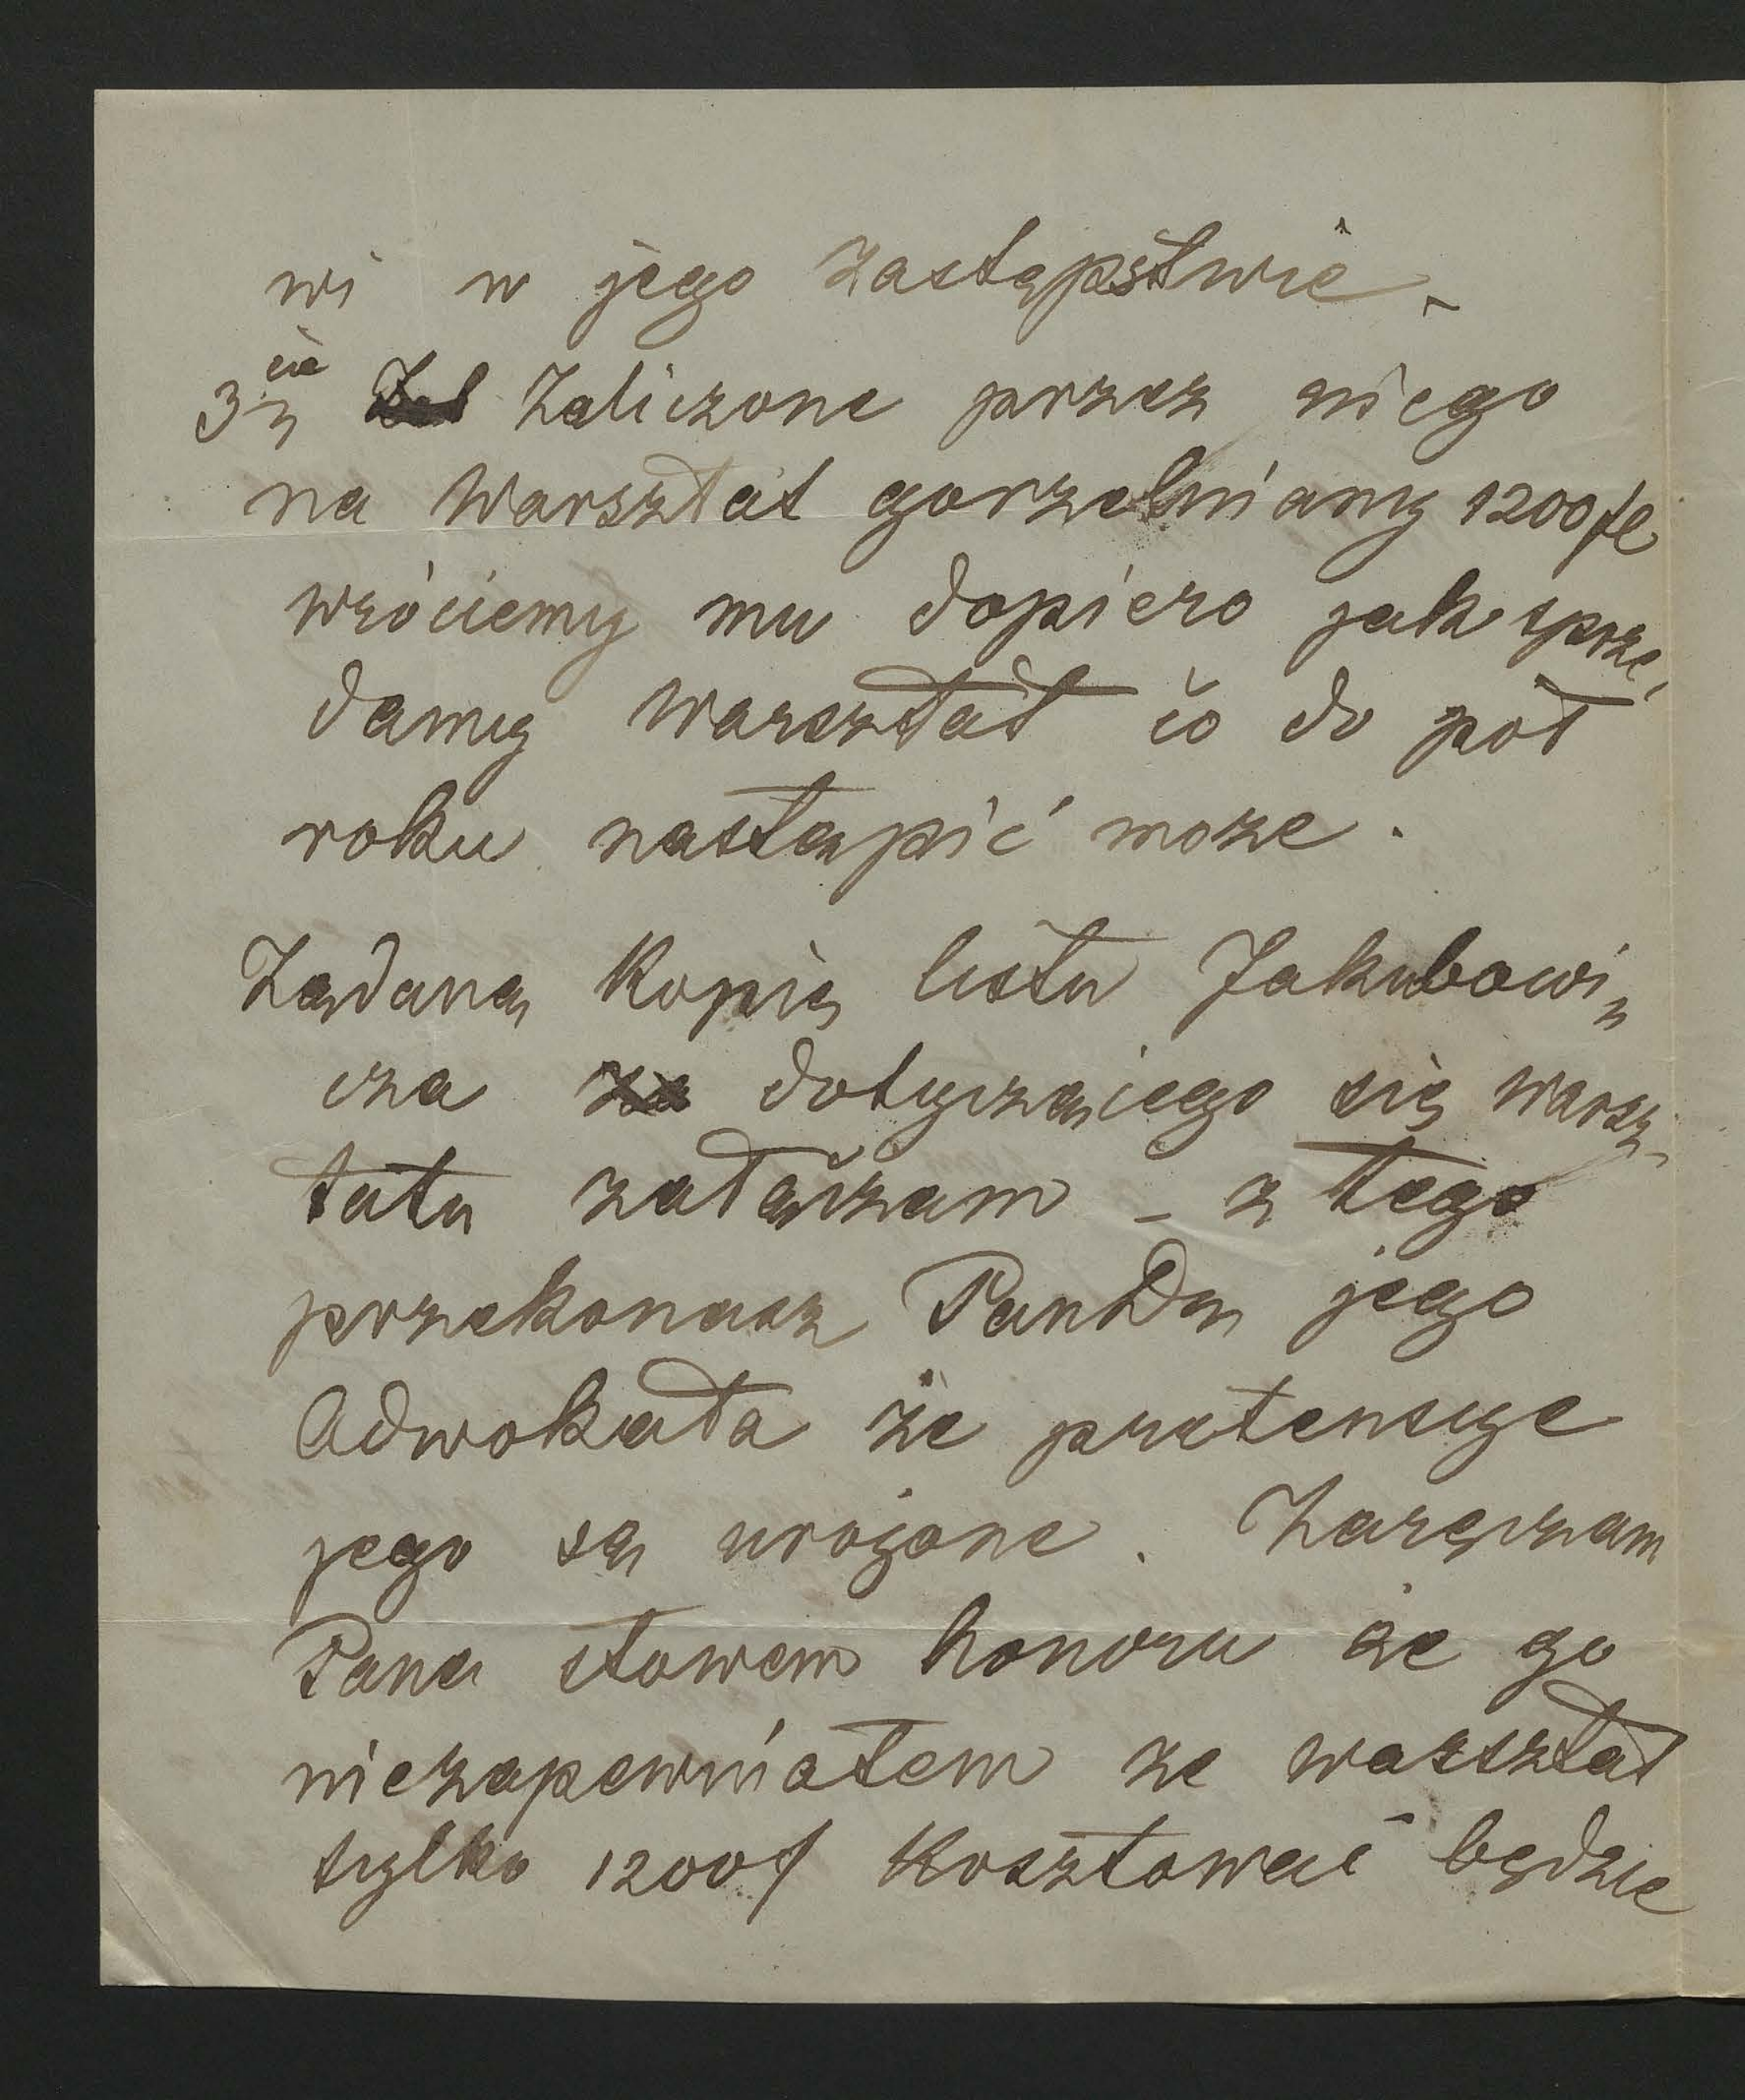 wi w jego zastępstwie -
3cie Zaliczone przez niego
na Warsztat gorzelniany 1200 fl
wróciemy mu dopiero jak sprze,
damy Warsztat co do pół
roku nastąpić moze.
Ządaną Kopią listu Jakubowi,,
cza dotyczącego się warsz-
tatu załączam - z tego
przekonasz Pan jego
Adwokata że pretensye
jego są urojone. Zaręczam
Pana słowem honoru że go
niezapewniałem ze warsztat
tylko 1200 f Kosztować będzie